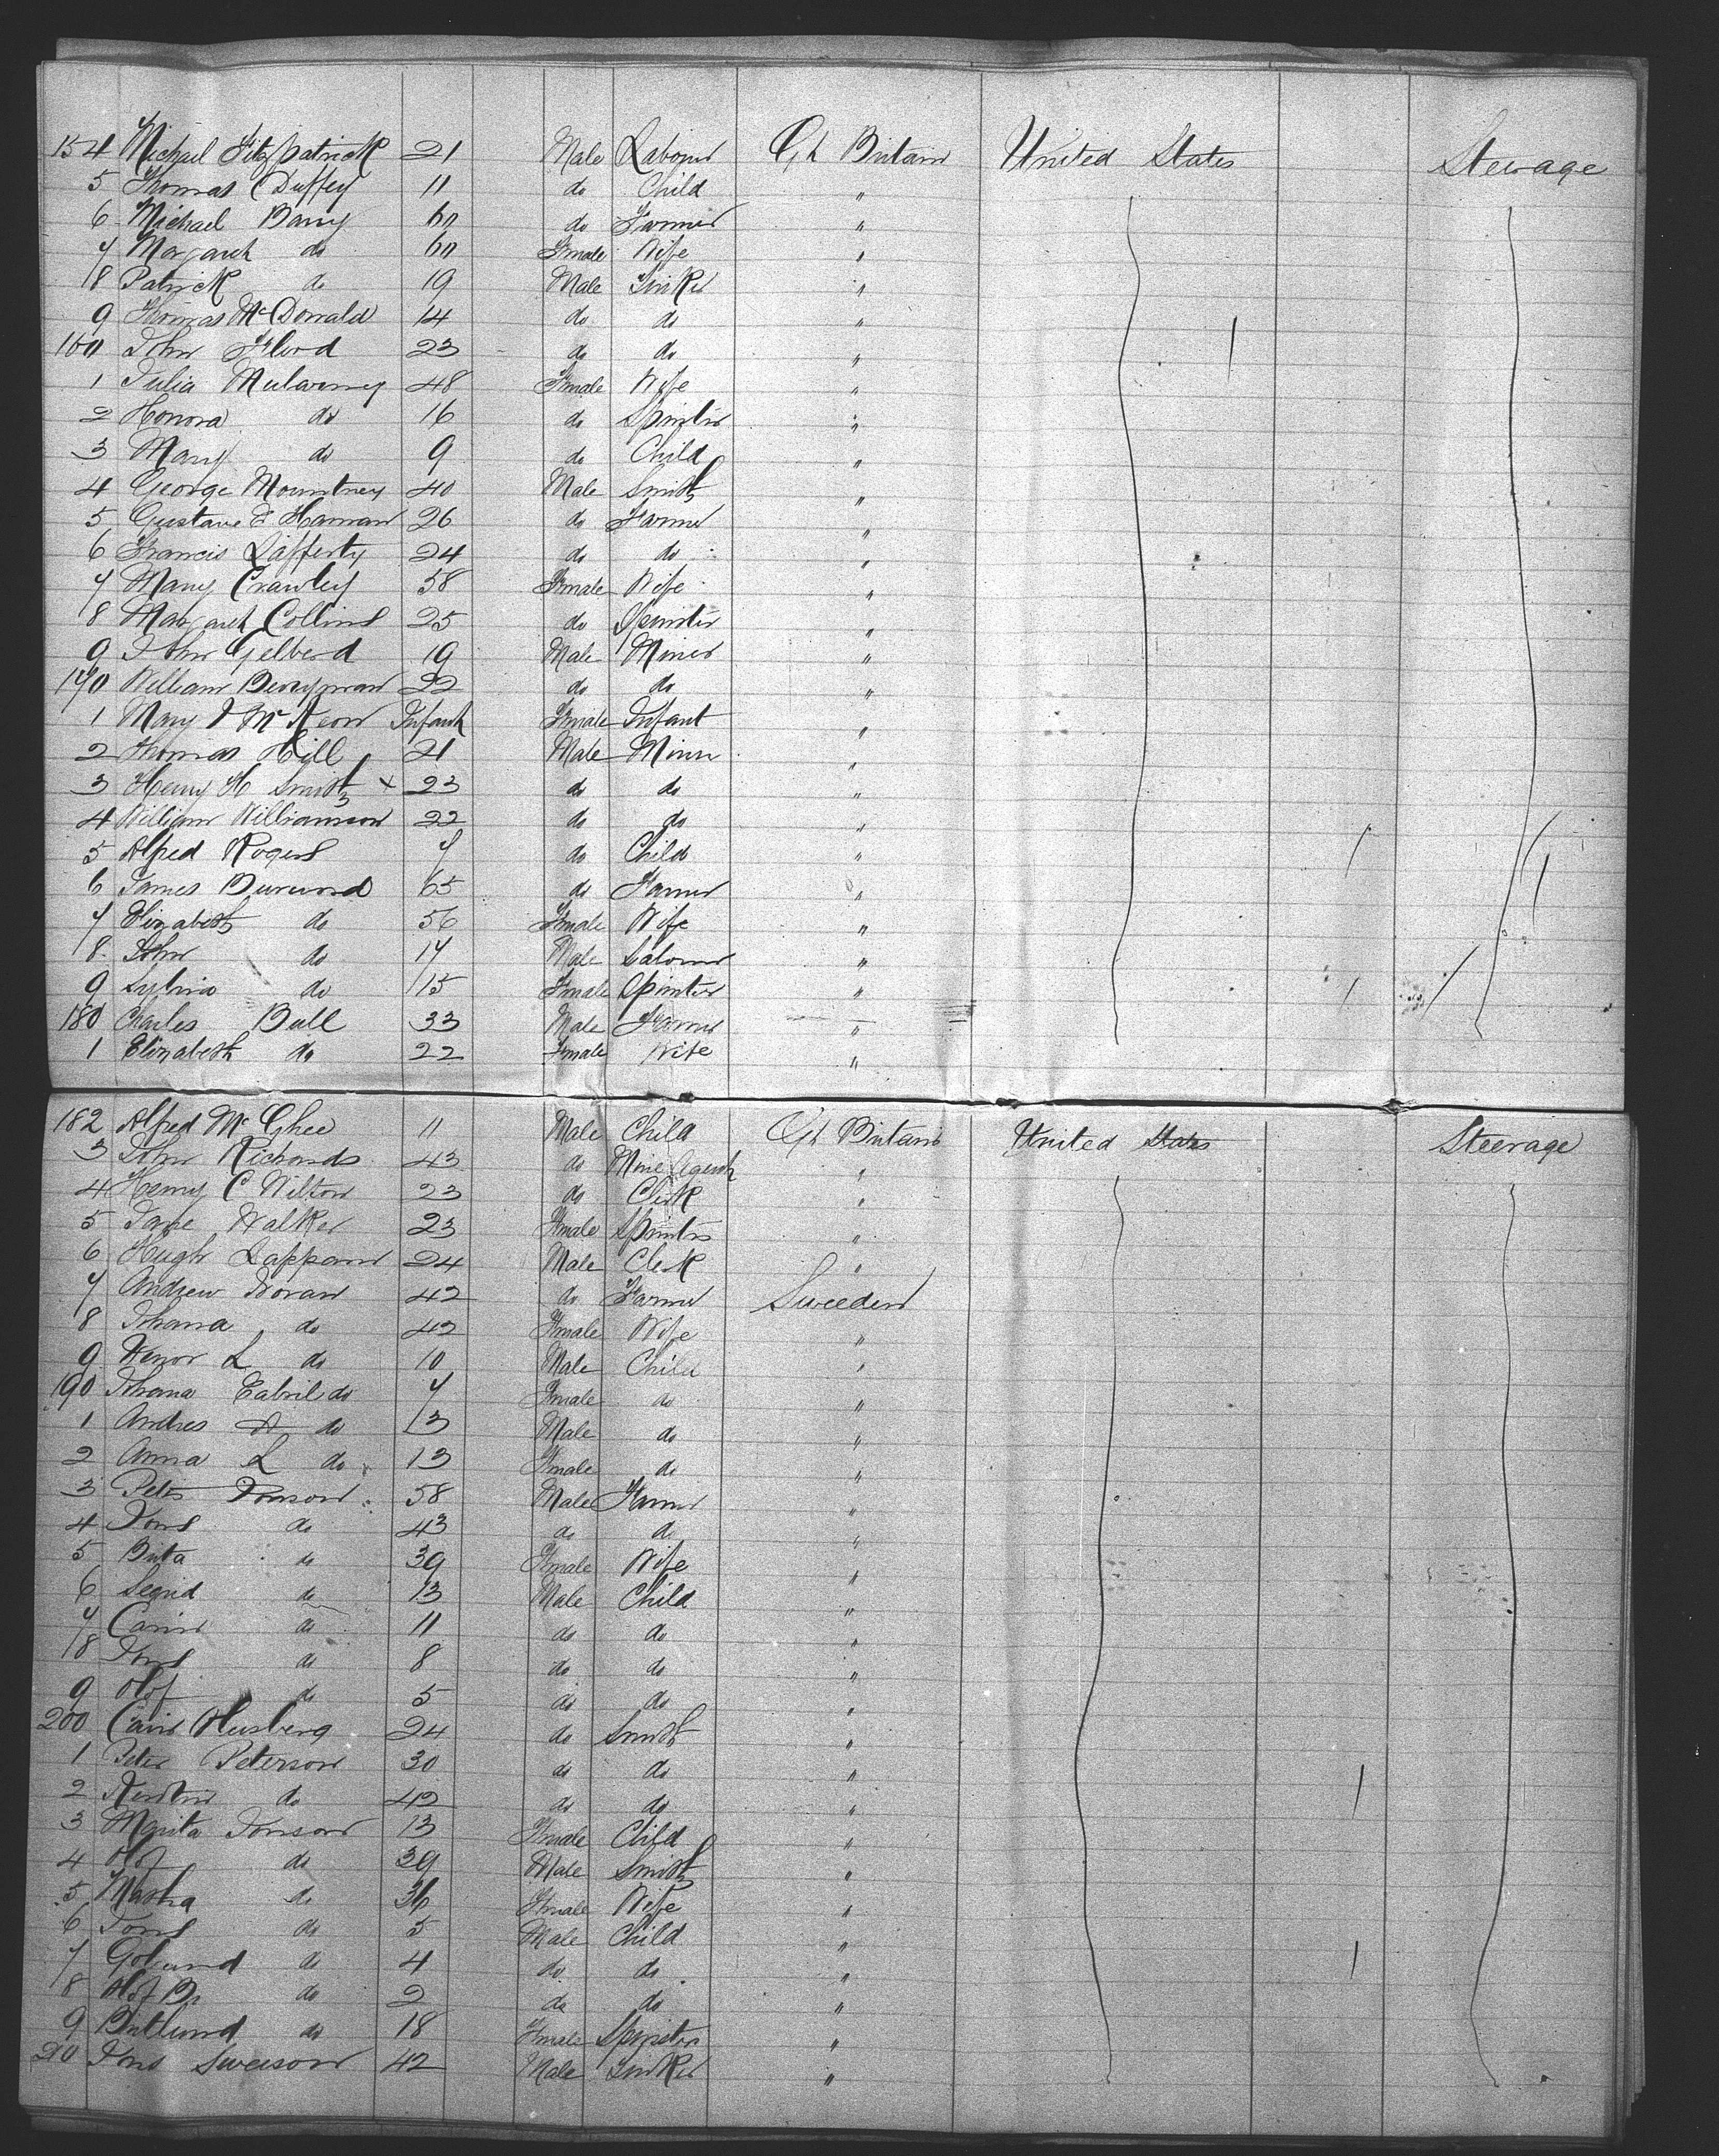 154 Michael Fitzpatrick 21 Male Labour Gt Britain United States Steerage
5 Thomas Duffey 11 do Child "
6 Michael Barry 60 do Farmer "
7 Margaret do 60 Female Wife "
8 Patrick do 19 Male Tinker "
9 Thomas McDonald 14 do do "
160 John Flood 23 do do "
1 Julia Mulvanny 48 Female Wife "
2 Honora do 16 do Spinster "
3 Mary do 9 do Child "
4 George Mountney 40 Male Smith "
5 Gustave E Haman 26 do Farmer "
6 Francis Lafferty 24 do do "
7 Mary Crawley 58 Female Wife "
8 Margaret Collins 25 do Spinster "
9 John Gelberd 19 Male Miner "
170 William Berryman 22 do do "
1 Mary J McKeon Infant Female Infant "
2 Thomas Hill 21 Male Miner "
3 Henry H Smith x 23 do do "
4 William Williamson 22 do do "
5 Alfred Rogers 7 do Child "
6 James Durwood 65 do Farmer "
7 Elizabeth do 56 Female Wife "
8 John do 17 Male Labour "
9 Sylvia do 15 Female Spinster "
180 Charles Bull 33 Male Farmer "
1 Elizabeth do 22 Female Wife "
182 Alfred McGhee 11 Male Child Gt Britain United States Steerage
3 John Richards 43 do Mine Agent "
4 Henry C Wilton 23 do Clerk "
5 Jane Walker 23 Female Spinster "
6 Hugh Lappan 24 Male Clerk "
7 Andrew 42 do Farmer Sweeden
8 Johana do 42 Female Wife "
9 L do 10 Male Child "
190 Johana do 7 Female do "
1 Andres A do 13 Male do "
2 Anna L do 13 Female do "
3 Peter Jonson 58 Male Farmer "
4 Jons do 43 do do "
5 Brita do 39 Female Wife "
6 Segrid do 13 Male Child "
7 Carin do 11 do do "
8 Jons do 8 do do "
9 Olof do 5 do do "
200 24 do Smith "
1 Peter Peterson 30 do do "
2 do 42 do do "
3 Marita Jonson 13 Female Child "
4 Olof do 39 Male Smith "
5 Martha do 36 Female Wife "
6 Jons do 5 Male Child "
7 do 4 do do "
8 Olof Br do 2 do do "
9 do 18 Female Spinster "
210 Jons Swenson 42 Male Tinker "